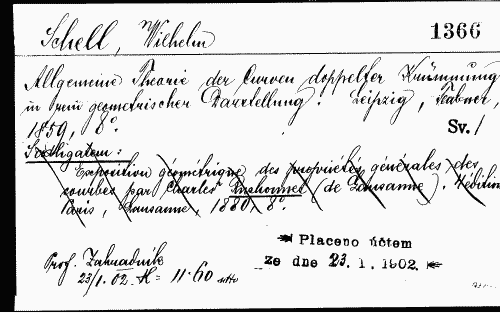 Schell, Wilhelm 1366
Allgemeine Theorie der Curven doppelter Krümmung
in rein geometrischer Darstellung. Leipzig, Teubner,
1859, 8°. Sv. 1
Exposition géométrique des propriétés générales des
courbes par Charles Ruchonnet (de Lausanne). 4 édition
Paris, Lausanne, 1880, 8°.
Prof. Zahradník
23/1. 02 K 11·60
Placeno účtem
ze dne 23. 1. 1902.